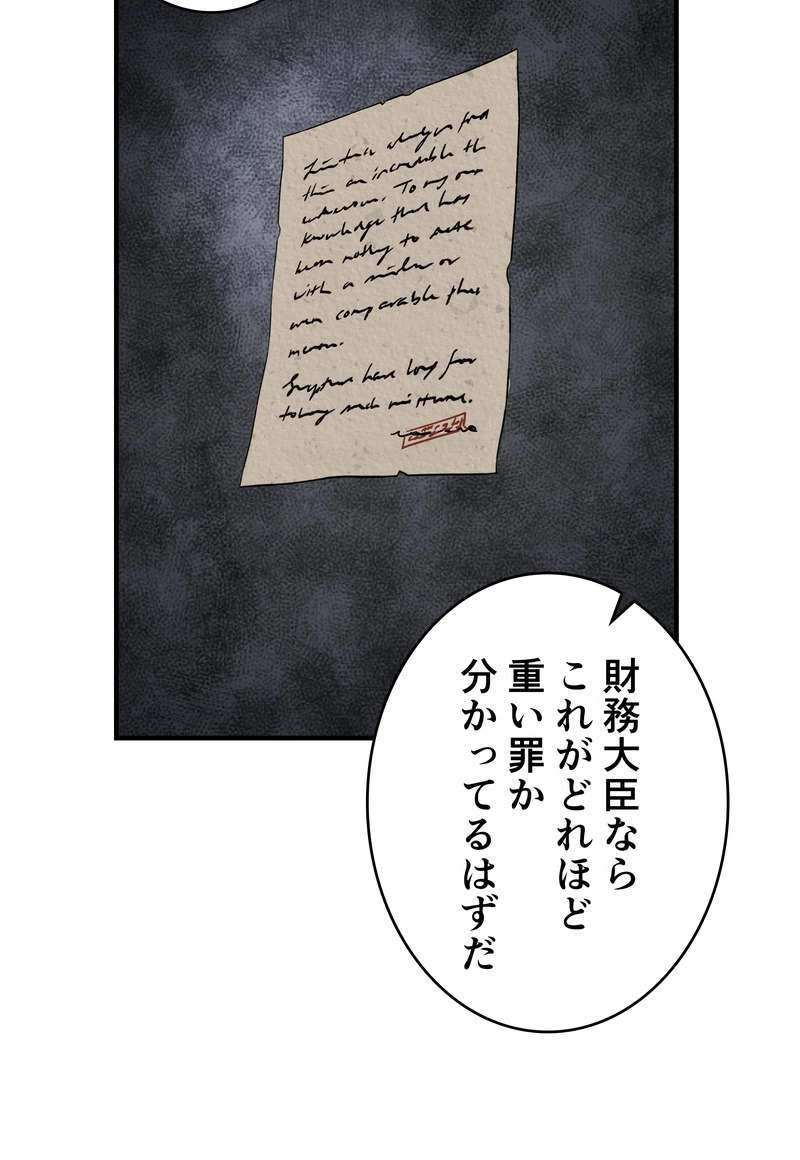 this an incredible th
unknown. To my own
knowledge that has
been nothing to
with a similar or
even comparable phe
menon.
have long for
such
財務大臣なら
これがどれほど
重い罪か
分かってるはずだ